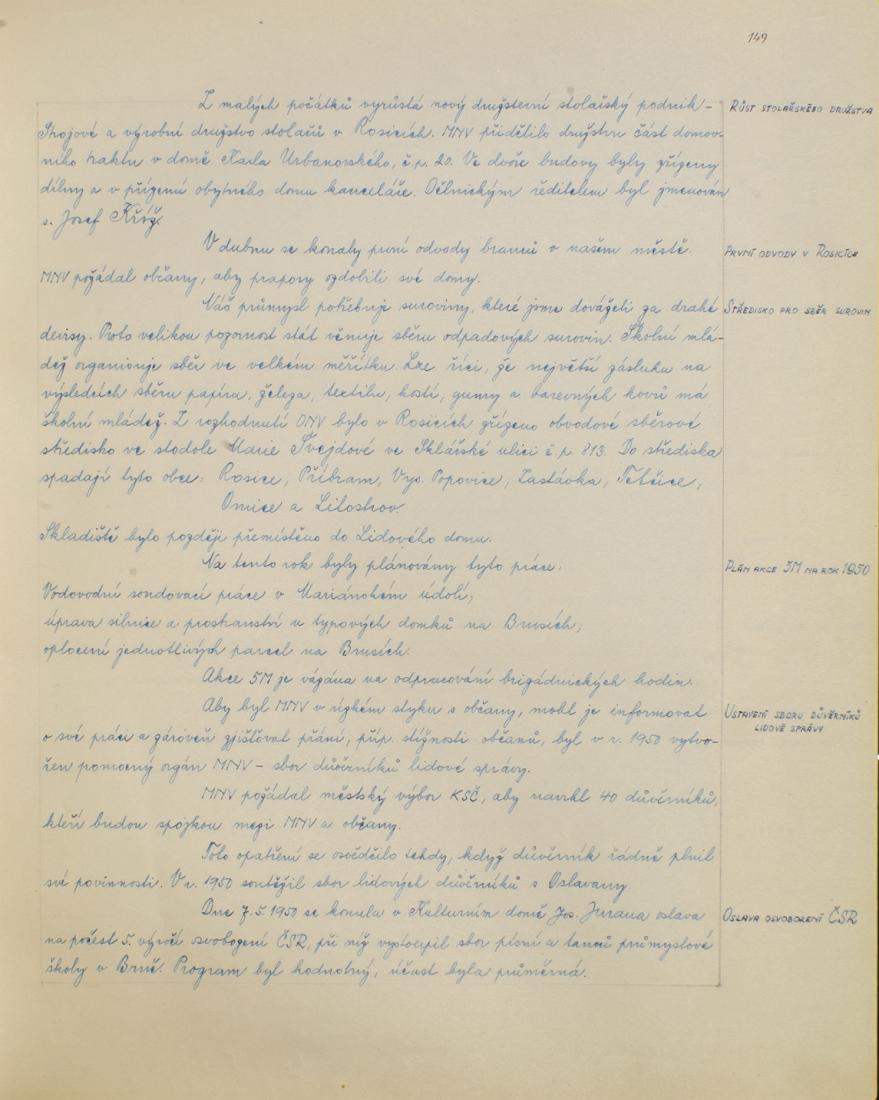 149
Z malých počátků vyrůstá nový družstevní stolařský podnik –
Růst stolařského družstva
Strojové a výrobní družstvo stolařů v Rosicích. MNV přidělilo družstvu část domov-
ního traktu v domě Karla Urbanovského, č.p. 20. Ve dvoře budovy byly zřízeny
dílny a v přízemí obytného domu kanceláře. Dělnickým ředitelem byl jmenován
s. Josef Kříž.
V dubnu se konaly první odvody branců v našem městě.
První odvody v Rosicích
MNV požádal občany, aby prapory ozdobili své domy.
Náš průmysl potřebuje suroviny, které jsme dováželi za drahé
Středisko pro sběr surovin
devisy. Proto velikou pozornost stát věnuje sběru odpadových surovin. Školní mlá-
dež organisuje sběr ve velkém měřítku. Lze říci, že největší zásluhu na
výsledcích sběru papíru, železa, textilu, kostí, gumy a barevných kovů má
školní mládež. Z rozhodnutí ONV bylo v Rosicích zřízeno obvodové sběrové
středisko ve stodole Marie Švejdové ve Sklářské ulici č.p. 813. Do střediska
spadají tyto obce: Rosice, Příbram, Vys. Popovice, Zastávka, Tetčice,
Omice a Litostrov.
Skladiště bylo později přemístěno do Lidového domu.
Na tento rok byly plánovány tyto práce:
Plán akce 5M na rok 1950
Vodovodní sondovací práce v Mariánském údolí;
úprava silnice a prostranství u typových domků na Brusích;
oplocení jednotlivých parcel na Brusích.
Akce 5M je vázána na odpracování brigádnických hodin.
Aby byl MNV v úzkém styku s občany, mohl je informovat
Ustavení sboru důvěrníků
lidové správy
o své práci a zároveň zjišťovat přání, příp. stížnosti občanů, byl v r. 1950 vytvo-
řen pomocný orgán MNV – sbor důvěrníků lidové správy.
MNV požádal městský výbor KSČ, aby navrhl 40 důvěrníků,
kteří budou spojkou mezi MNV a občany.
Toto opatření se osvědčilo tehdy, když důvěrník řádně plnil
své povinnosti. V r. 1950 soutěžil sbor lidových důvěrníků s Oslavany.
Dne 7.5.1950 se konala v Kulturním domě Jos. Jurana oslava
Oslava osvobození ČSR
na počest 5. výročí osvobození ČSR, při níž vystoupil sbor písní a tanců průmyslové
školy v Brně. Program byl hodnotný, účast byla průměrná.